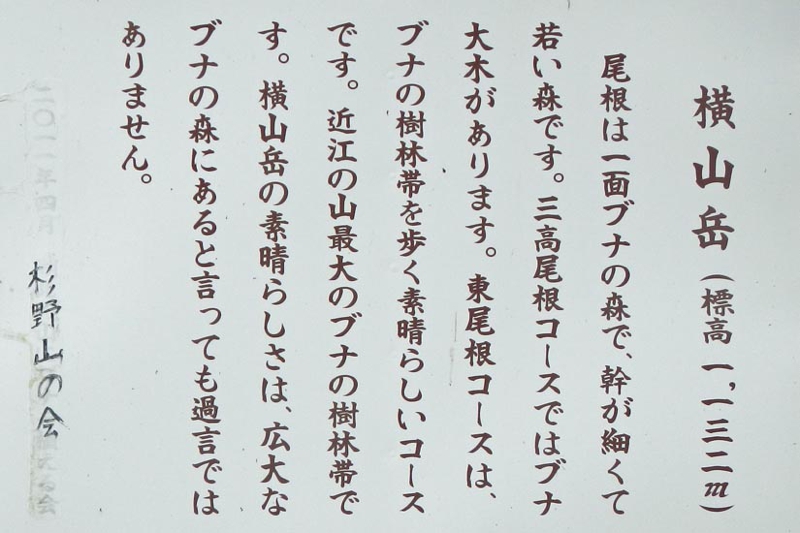 横山岳（標高一,一三二m）
尾根は一面ブナの森で、幹が細くて
若い森です。三高尾根コースではブナ
大木があります。東尾根コースは、
ブナの樹林帯を歩く素晴らしいコース
です。近江の山最大のブナの樹林帯で
す。横山岳の素晴らしさは、広大な
ブナの森にあると言っても過言では
ありません。
二〇一一年四月
杉野山の会